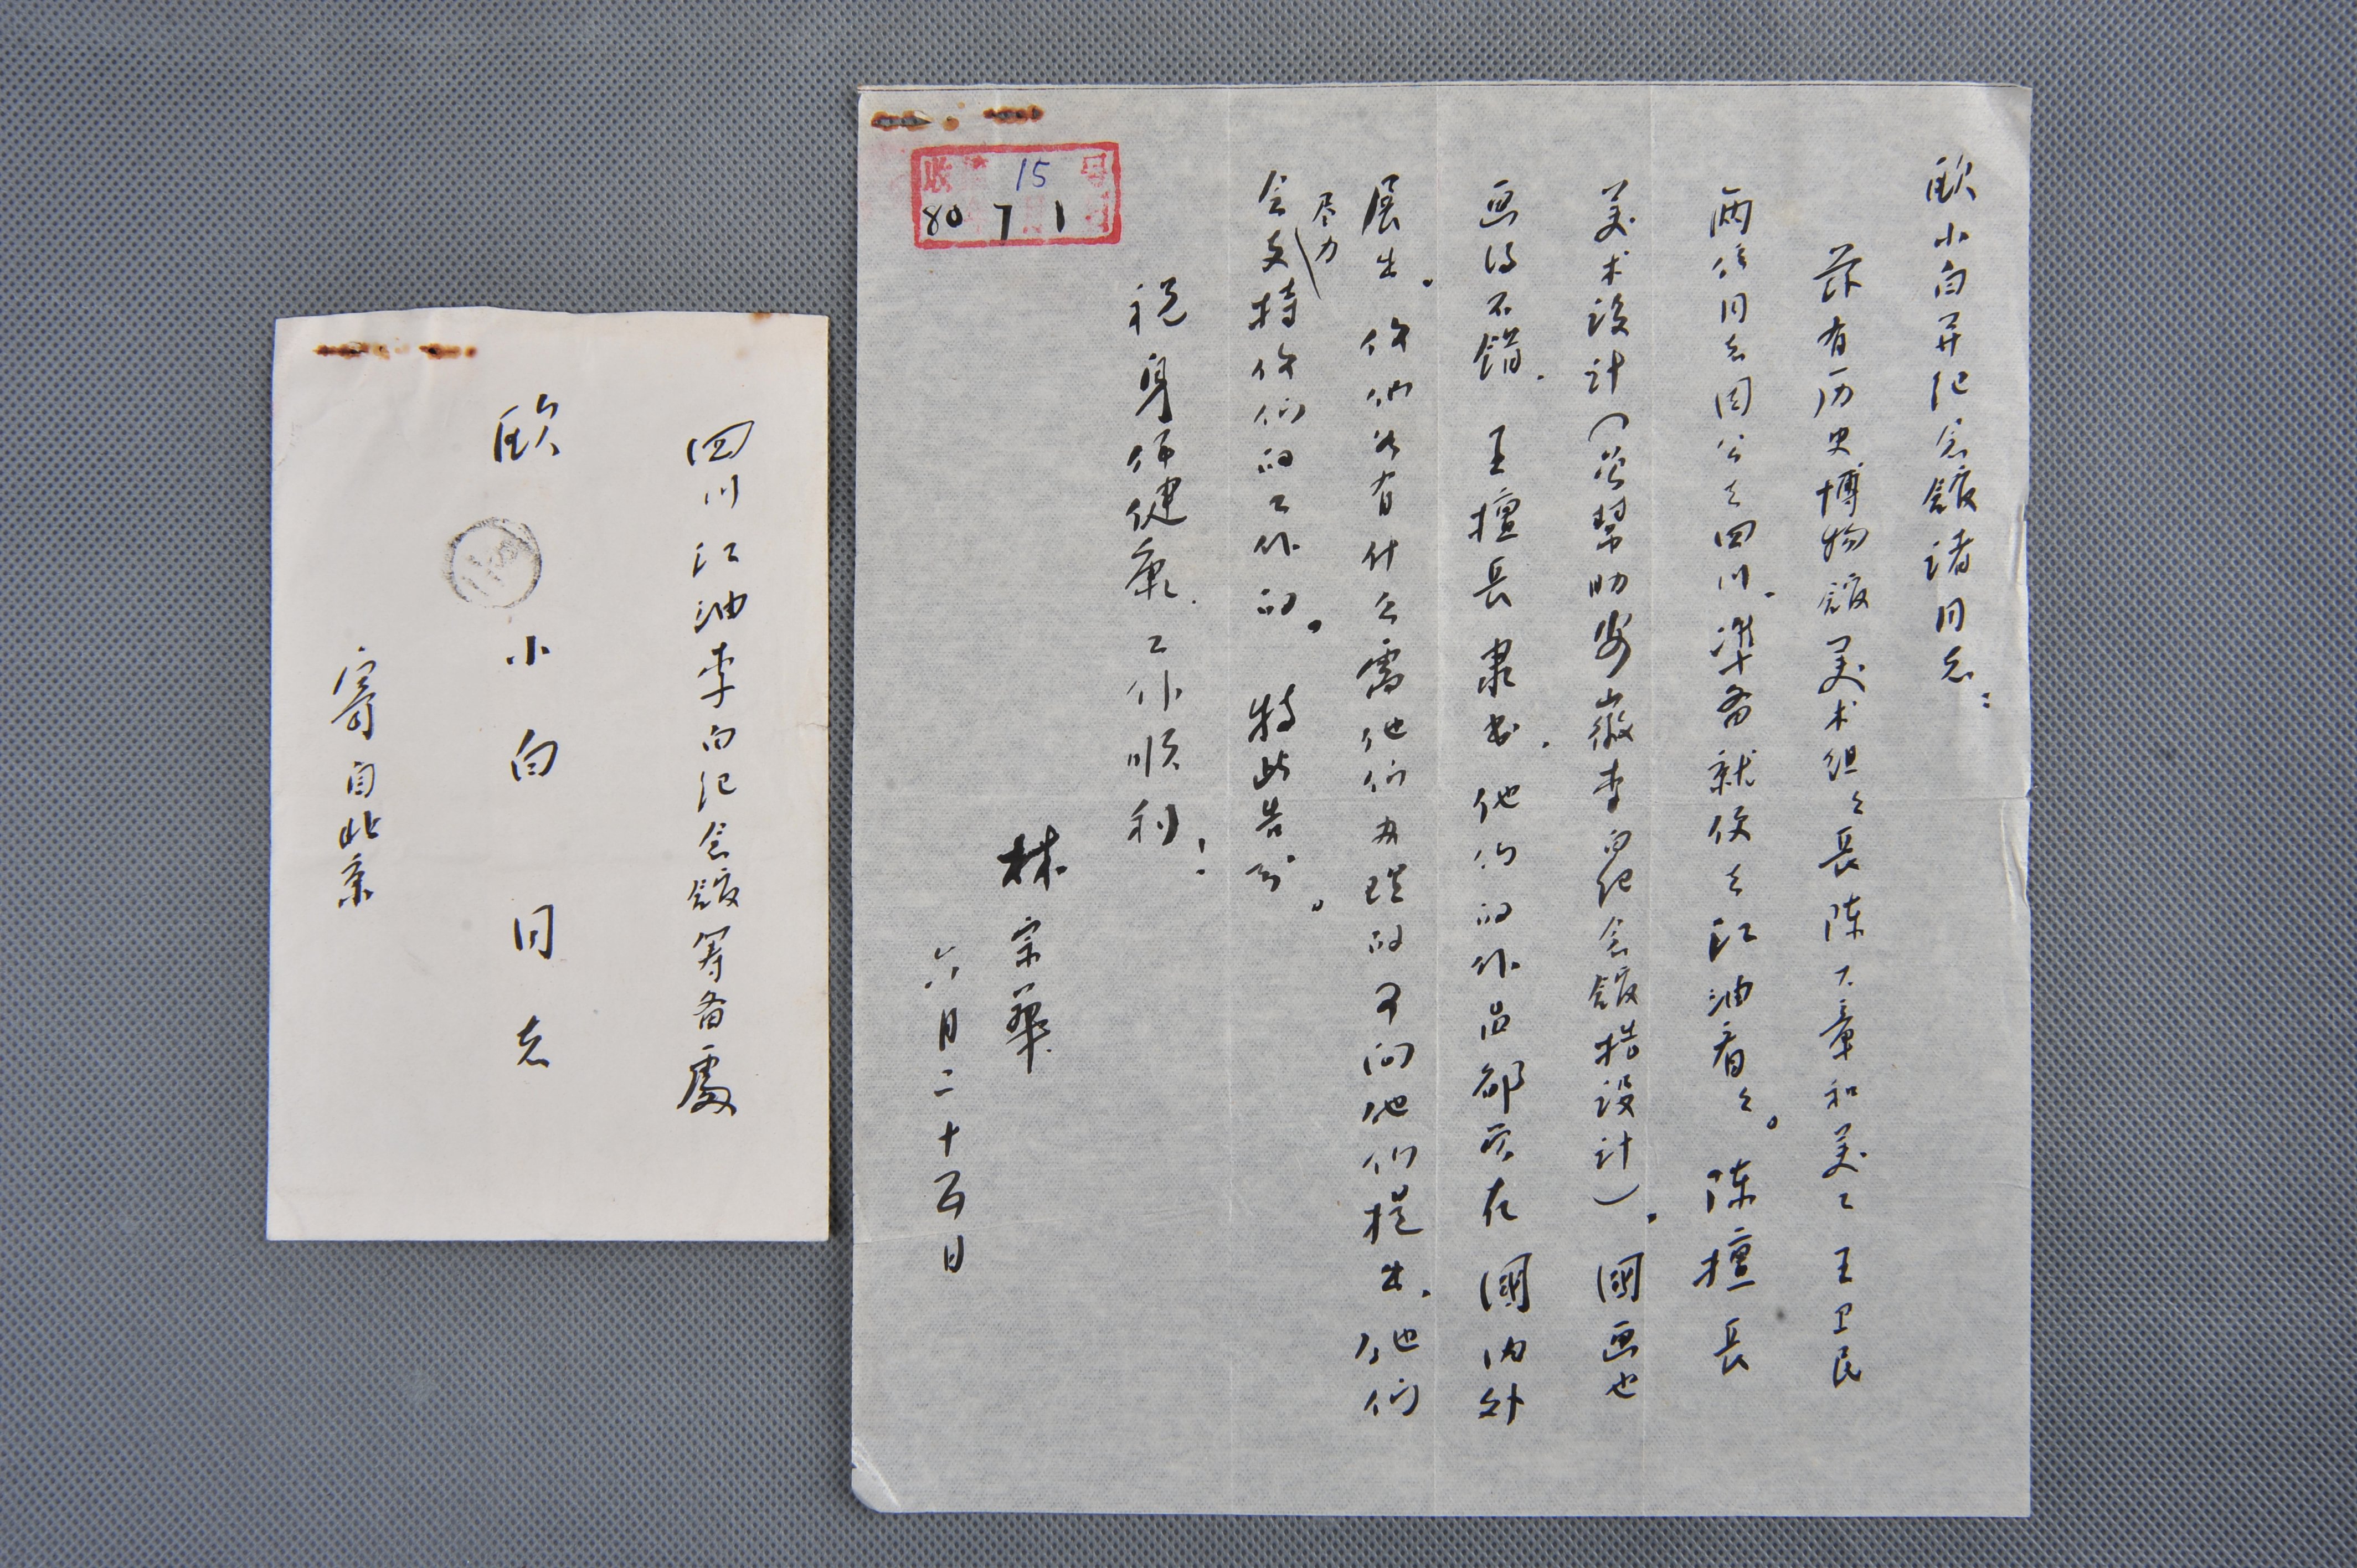 四川江油李白纪念馆筹备處
欧小白同志
寄自北京
欧小白并纪念馆诸同志：
兹有历史博物馆美术组々长陈大章和美工王卫民
两位同志因公去四川，準备就便去江油看々。陈擅长
美术设计（曾幫助安徽李白纪念馆搞设计）。國画也
画得不错。王擅长隶书。他们的作品都曾在國内外
展出。你们如有什么需他们办理的可向他们提出，他们
会尽力支持你们的工作的。特此告知。
祝身体健康、工作顺利！
林宗華
六月二十五日
收 15 号
80 7 1